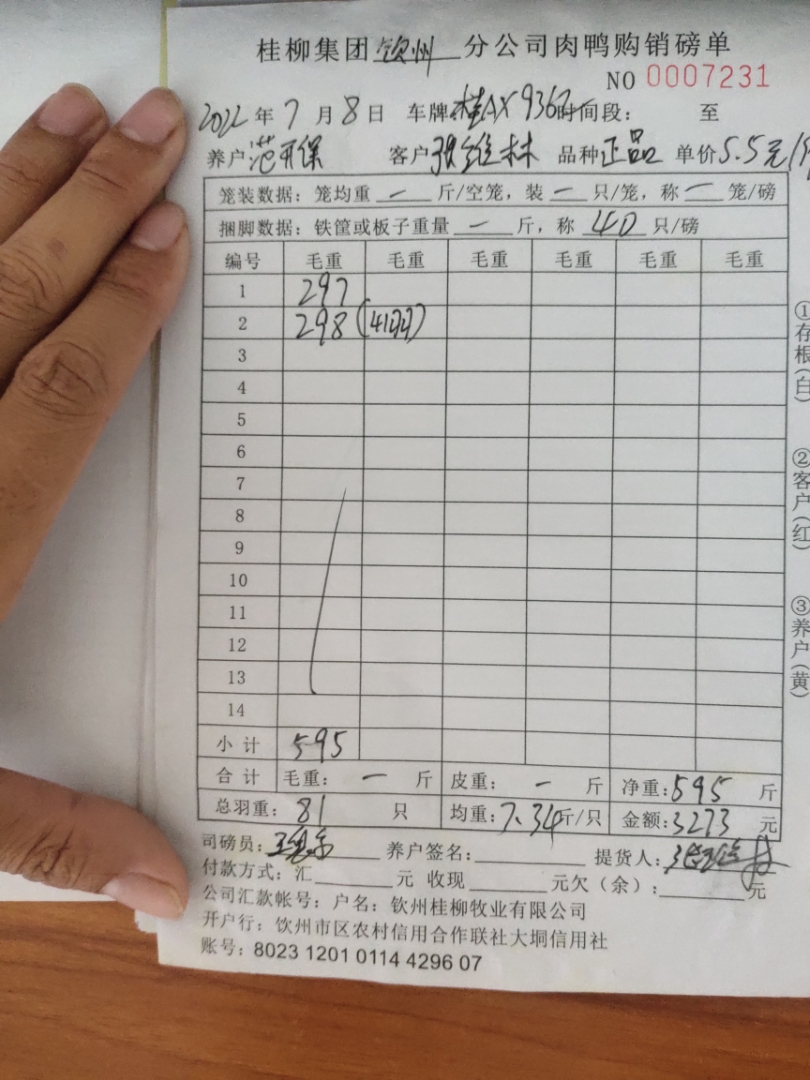 桂柳集团 钦州 分公司肉鸭购销磅单
NO 0007231
2022 年 7 月 8 日 车牌: 桂AX9367 时间段: 至
养户 范开保 客户 张维林 品种 正品 单价 5.5元/
笼装数据: 笼均重 一 斤/空笼, 装 一 只/笼, 称 一 笼/磅
捆脚数据: 铁筐或板子重量 一 斤, 称 40 只/磅
编号 毛重 毛重 毛重 毛重 毛重 毛重
1 297
2 298 (41羽)
3
4
5
6
7
8
9
10
11
12
13
14
小计 595
合计 毛重: 一 斤 皮重: 一 斤 净重: 595 斤
总羽重: 81 只 均重: 7.34 斤/只 金额: 3273 元
司磅员: 养户签名: 提货人: 张维林
付款方式: 汇 元 收现 元欠(余): 元
公司汇款帐号: 户名: 钦州桂柳牧业有限公司
开户行: 饮州市区农村信用合作联社大垌信用社
账号: 8023 1201 0114 4296 07
①存根(白)
②客户(红)
③养户(黄)